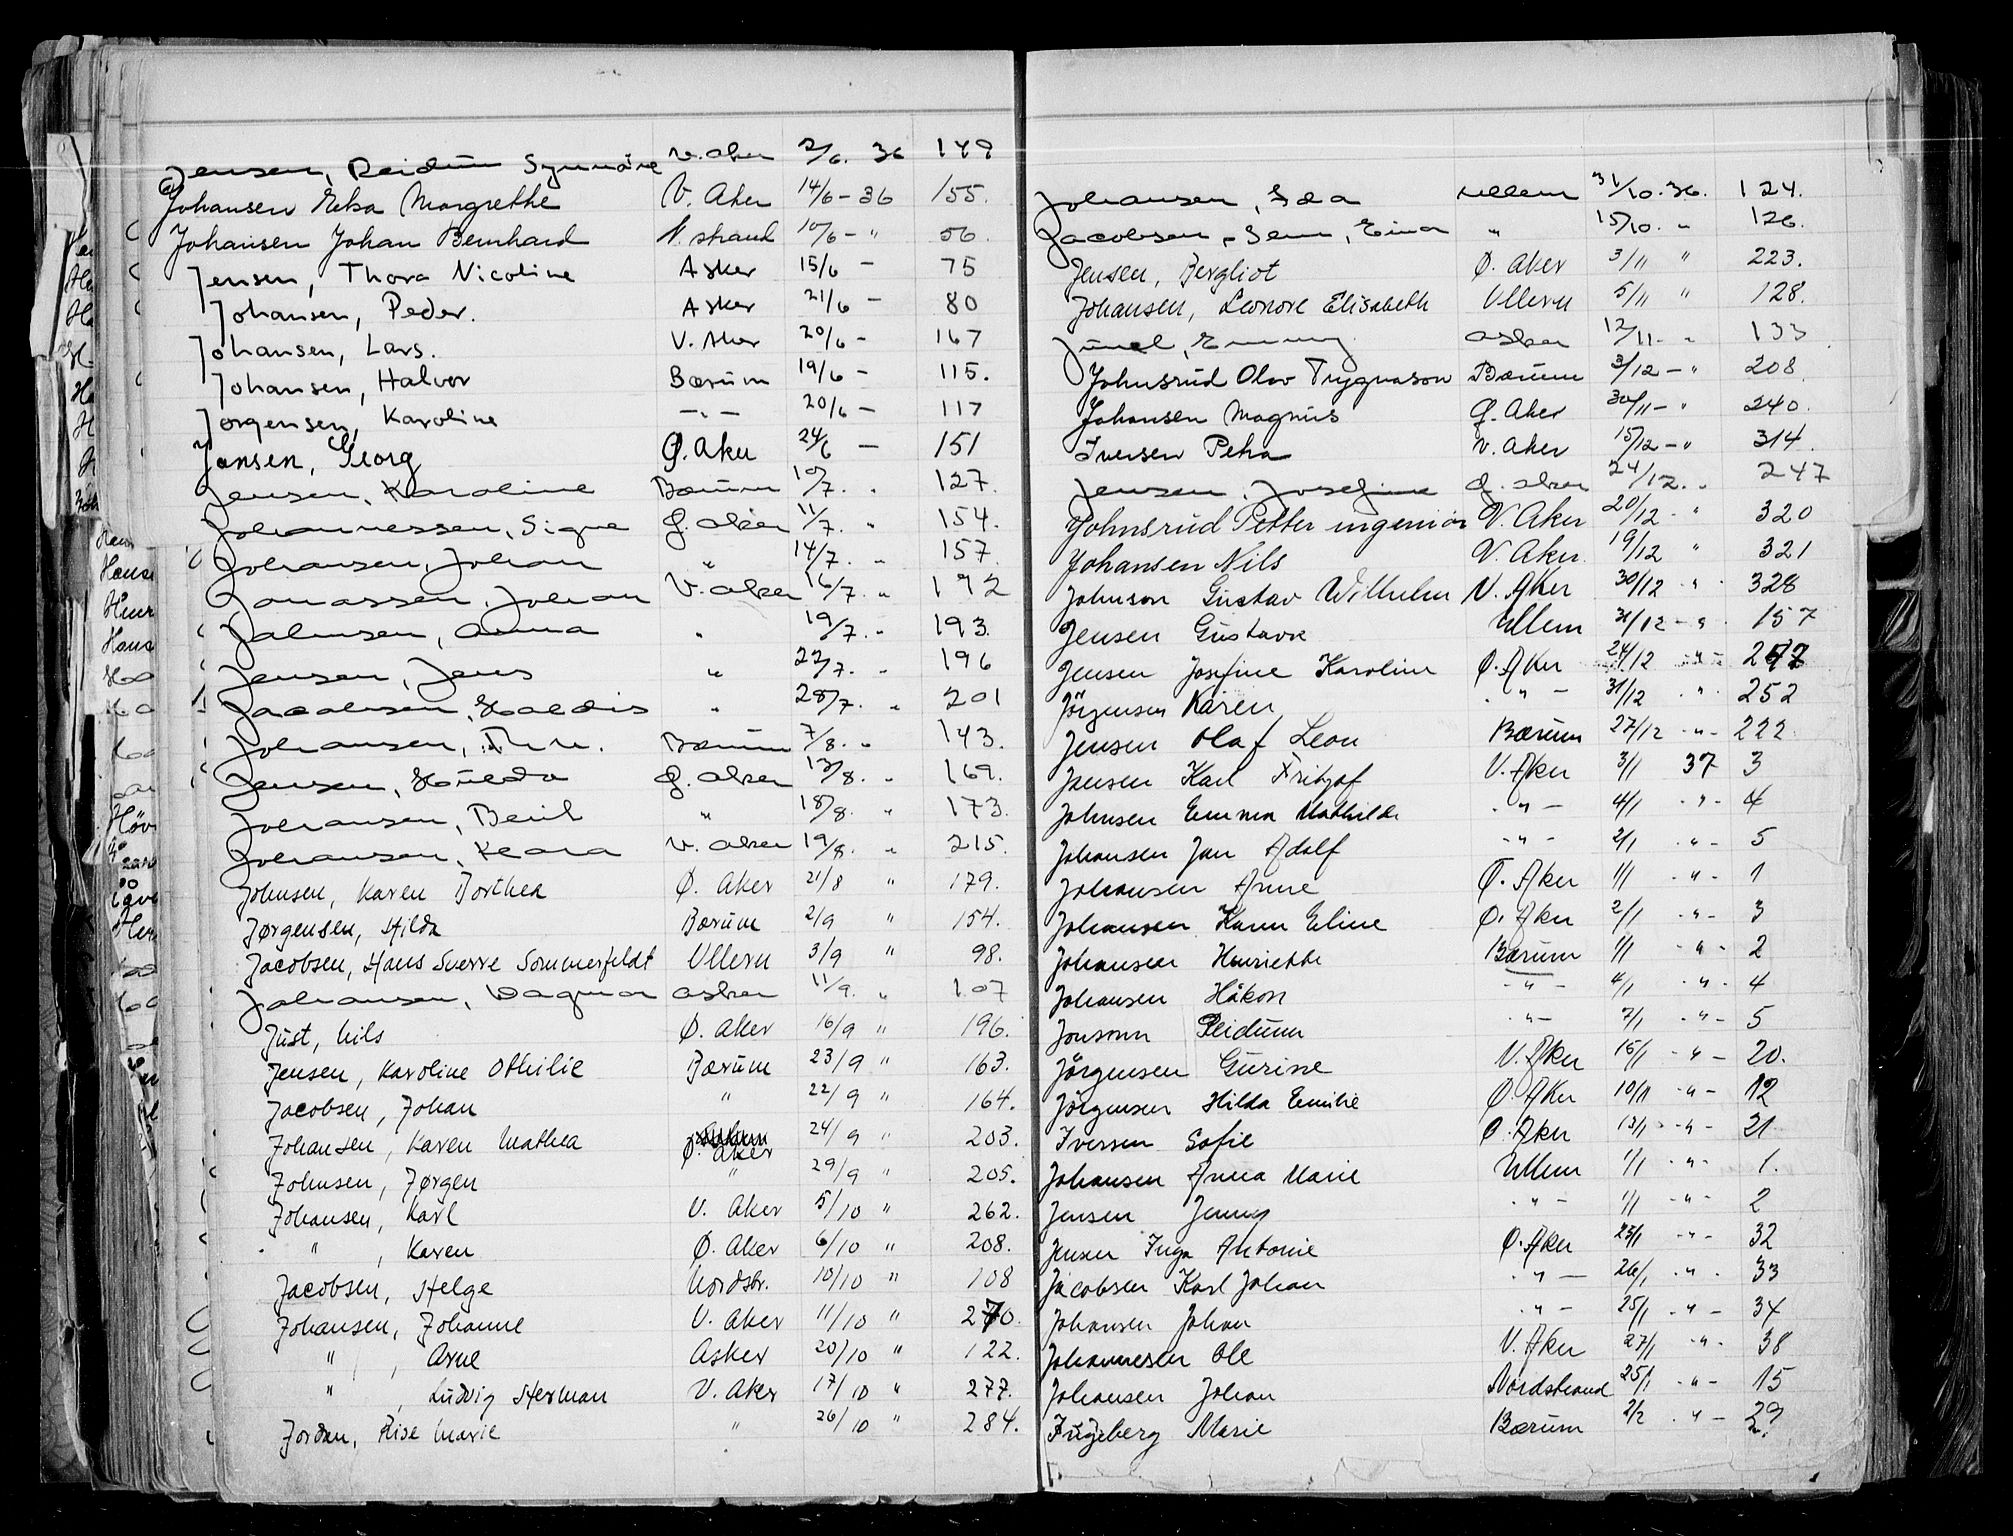 Jensen, Reidun Synnöve V. Aker 2/6. 36 149
Johansen Eba Margrethe V. Aker 14/6 - 36 155.
Johansen Johan Bernhard N. strand 10/6 - " 56.
Jensen, Thora Nicoline Asker 15/6 - 75
Johansen, Peder. Asker 21/6 - 80
Johansen, Lars. V. Aker 20/6 - 167
Johansen, Halvor Bærum 19/6 - 115.
Jørgensen, Karoline -"- 20/6 - 117
Jansen, Georg Ø. Aker 24/6 - 151
Jensen, Karoline Bærum 10/7. " 127.
Johannessen, Signe Ø. Aker 11/7. " 154.
Johansen, Johan " 14/7. " 157.
Jonassen, Johan V. Aker 16/7. " 192
Johnsen, Anna " 19/7. " 193.
Jensen, Jens " 22/7. " 196
Jacobsen, Haldis " 28/7. " 201
Johansen, Bærum 7/8. " 143.
Jensen, Hulda Ø. Aker 13/8. " 169.
Johansen, Berit " 18/8. " 173.
Johansen, Klara V. Aker 19/8. " 215.
Johnsen, Karen Dorthea Ø. Aker 21/8 " 179.
Jørgensen, Hilda Bærum 2/9 " 154.
Jacobsen, Hans Sverre Sommerfeldt Ullern 3/9 " 98.
Johansen, Dagmar Asker 11/9. " 107
Just, Nils Ø. Aker 16/9 " 196.
Jensen, Karoline Othilie Bærum 23/9 " 163.
Jacobsen, Johan " 22/9 " 164.
Johansen, Karen Mathea Ø. Aker 24/9 " 203.
Johnsen, Jørgen " 29/9 " 205.
Johansen, Karl V. Aker 5/10 " 262.
" , Karen Ø. Aker 6/10 " 208.
Jacobsen, Helge Nordstr. 10/10 " 108
Johansen, Johanne V. Aker 11/10 " 270.
" , Arne Asker 20/10 " 122.
" , Ludvig Herman V. Aker 17/10 " 277.
Jordan, Elise Marie " 26/10 " 284.
Johansen, Ida Ullern 31/10. 36. 124.
Jacobsen, Sem, Einar " 15/10. " 126.
Jensen, Bergliot Ø. Aker 3/11 " 223.
Johansen, Leonore Elisabeth Ullern 5/11 " 128.
Juuel, Emmy Asker 12/11. " 133
Johnsrud Olav Trygvason Bærum 3/12 - " 208
Johansen Magnus Ø. Aker 30/11 - " 240.
Iversen Petra V. Aker 15/12 - " 314.
Jensen, Josefine Ø. Aker 24/12. " 247
Johnsrud Petter ingeniør V. Aker 20/12 - " 320
Johansen Nils V. Aker 19/12 " 321
Johnson Gustav Wilhelm V. Aker 30/12 - " 328
Jensen Gustava Ullern 31/12 - " 157
Jensen Josefine Karoline Ø. Aker 24/12 - " - 247
Jörgensen Karen - " - 31/12 - " 252
Jensen Olaf Leon Bærum 27/12 - " - 222
Jensen Karl Fritjof V. Aker 3/1 37 3
Johnsen Emma Mathilde - " - 4/1 - " - 4
Johansen Jan Adolf - " - 2/1 - " - 5
Johansen Anne Ø. Aker 1/1 - " - 1
Johansen Karen Eline Ø. Aker 2/1 - " - 3
Johansen Henriette Bærum 1/1 - " - 2
Johansen Håkon - " - 4/1 - " - 4
Jonsson Reidunn - " - 7/1 - " - 5
Jörgensen Gurine V. Aker 15/1 - " - 20.
Jörgensen Hilda Emilie Ø. Aker 10/1 - " - 12
Iversen Sofie Ø. Aker 13/1 - " - 21
Johansen Anna Marie Ullern 1/1 - " - 1.
Jensen Jenny - " - 1/1 - " - 2
Jensen Inga Antonie Ø. Aker 23/1 - " - 32
Jacobsen Karl Johan - " - 26/1 - " - 33
Johansen Johan - " - 25/1 - " - 34
Johannesen Ole V. Aker 27/1 - " - 38
Johansen Johan Nordstrand 25/1 - " - 15
Marie Bærum 2/2 - " - 29.